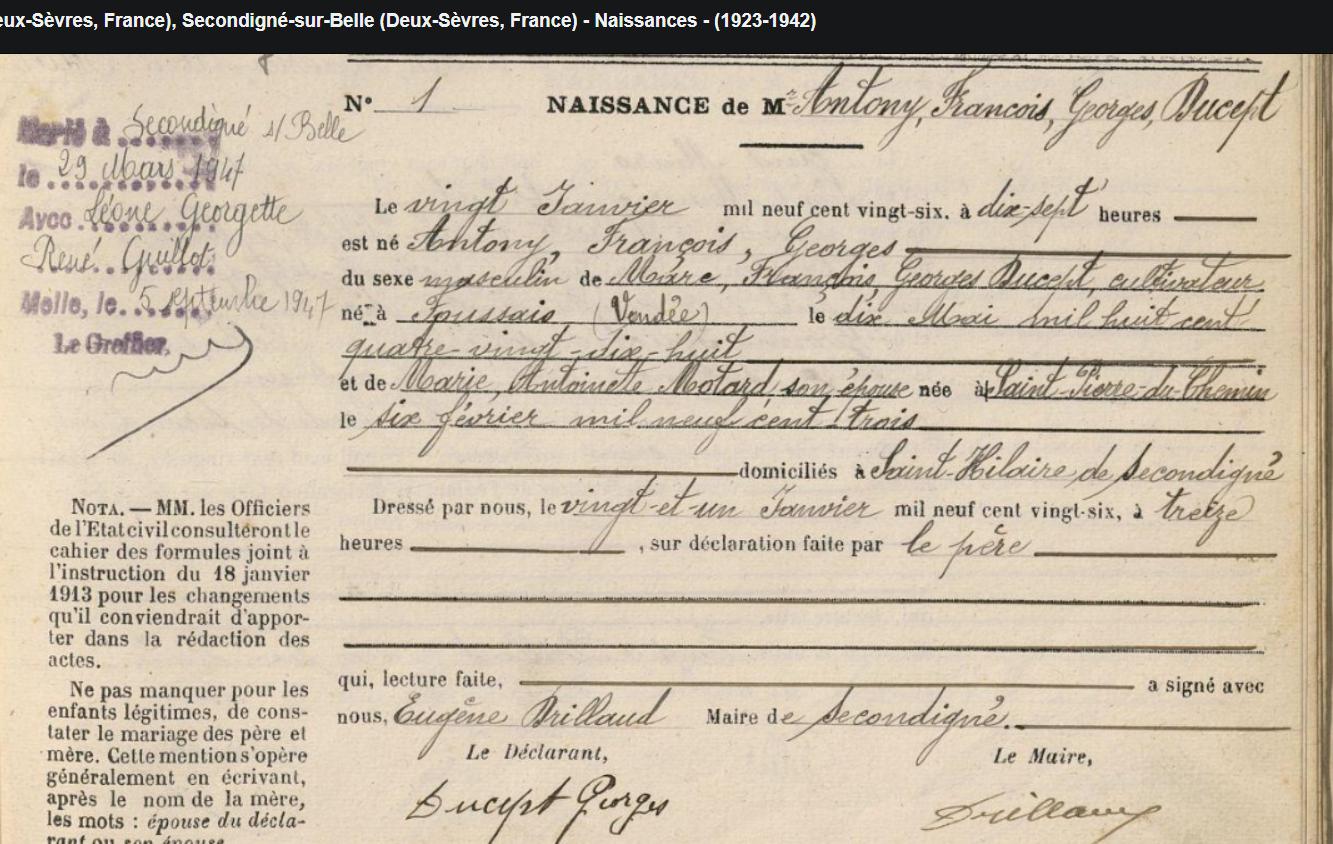 eux-Sèvres, France), Secondigné-sur-Belle (Deux-Sèvres, France) - Naissances - (1923-1942)
N° 1 NAISSANCE de M Antony, François, Georges, Ducept
Marié à Secondigné s/ Belle
le 29 Mars 1947
Avec Léone Georgette
René Guillot
Melle, le 5 septembre 1947
Le Greffier,
Le vingt Janvier mil neuf cent vingt-six, à dix-sept heures
est né Antony, François, Georges
du sexe masculin de Marc, François, Georges Ducept, cultivateur
né à Foussais (Vendée) le dix Mai mil huit cent
quatre-vingt-dix-huit
et de Marie, Antoinette Motard, son épouse née à Saint-Pierre-du-Chemin
le six février mil neuf cent trois
domiciliés à Saint-Hilaire de Secondigné
Dressé par nous, le vingt-et-un Janvier mil neuf cent vingt-six, à treize
heures , sur déclaration faite par le père
qui, lecture faite, a signé avec
nous, Eugène Brillaud Maire de Secondigné.
Le Déclarant, Le Maire,
Ducept Georges Brillaud
NOTA. — MM. les Officiers
de l'Etat civil consulteront le
cahier des formules joint à
l'instruction du 18 janvier
1913 pour les changements
qu'il conviendrait d'appor-
ter dans la rédaction des
actes.
Ne pas manquer pour les
enfants légitimes, de cons-
tater le mariage des père et
mère. Cette mention s'opère
généralement en écrivant,
après le nom de la mère,
les mots : épouse du décla-
rant ou son épouse